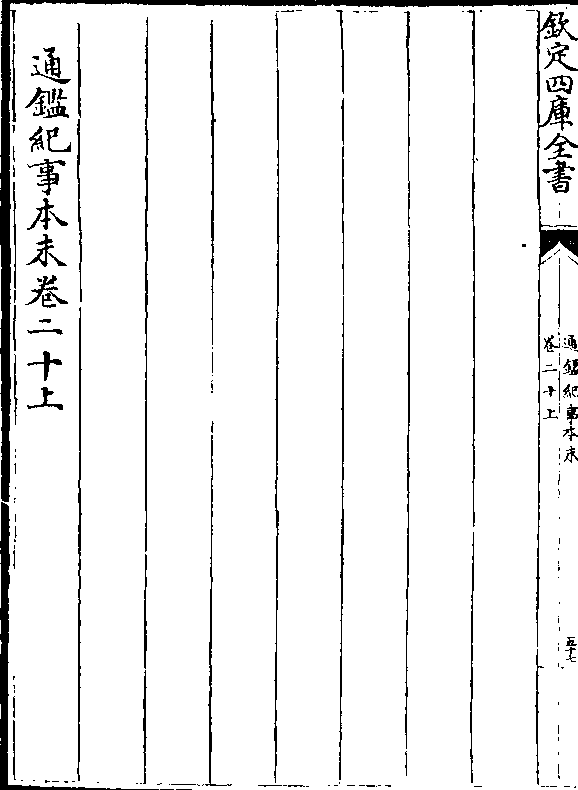 欽定四庫全書
通鑑紀事本末
卷二十上
五十七
通鑑紀事本末卷二十上